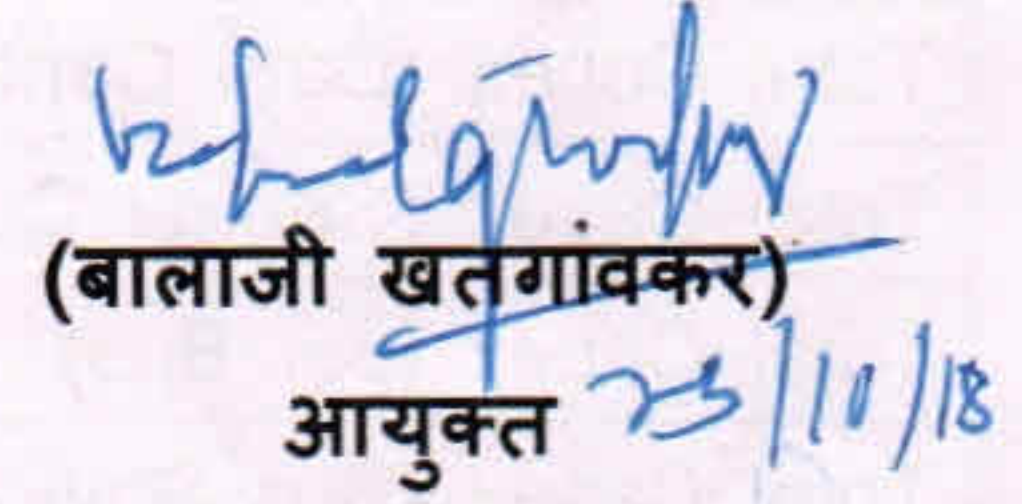 (बालाजी खतगांवकर)
आयुक्त 23/10/18